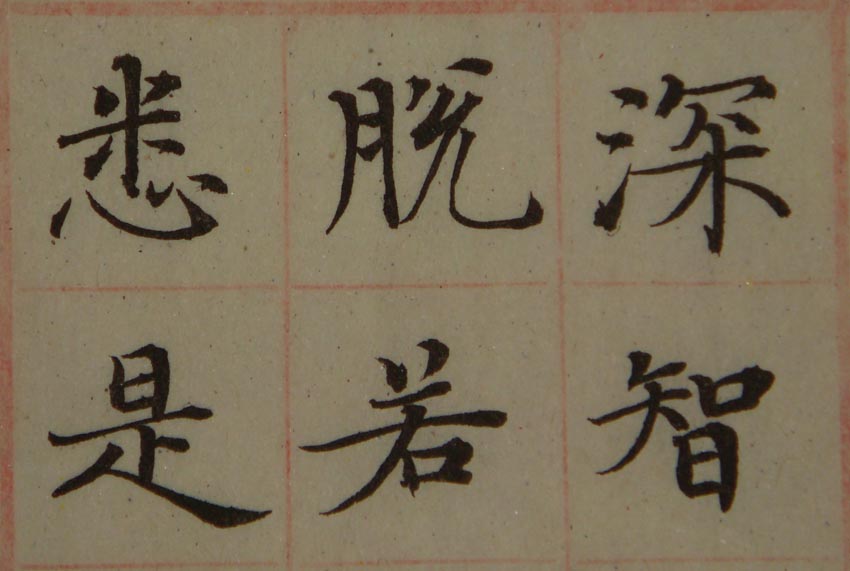 深智
脱若
悉是